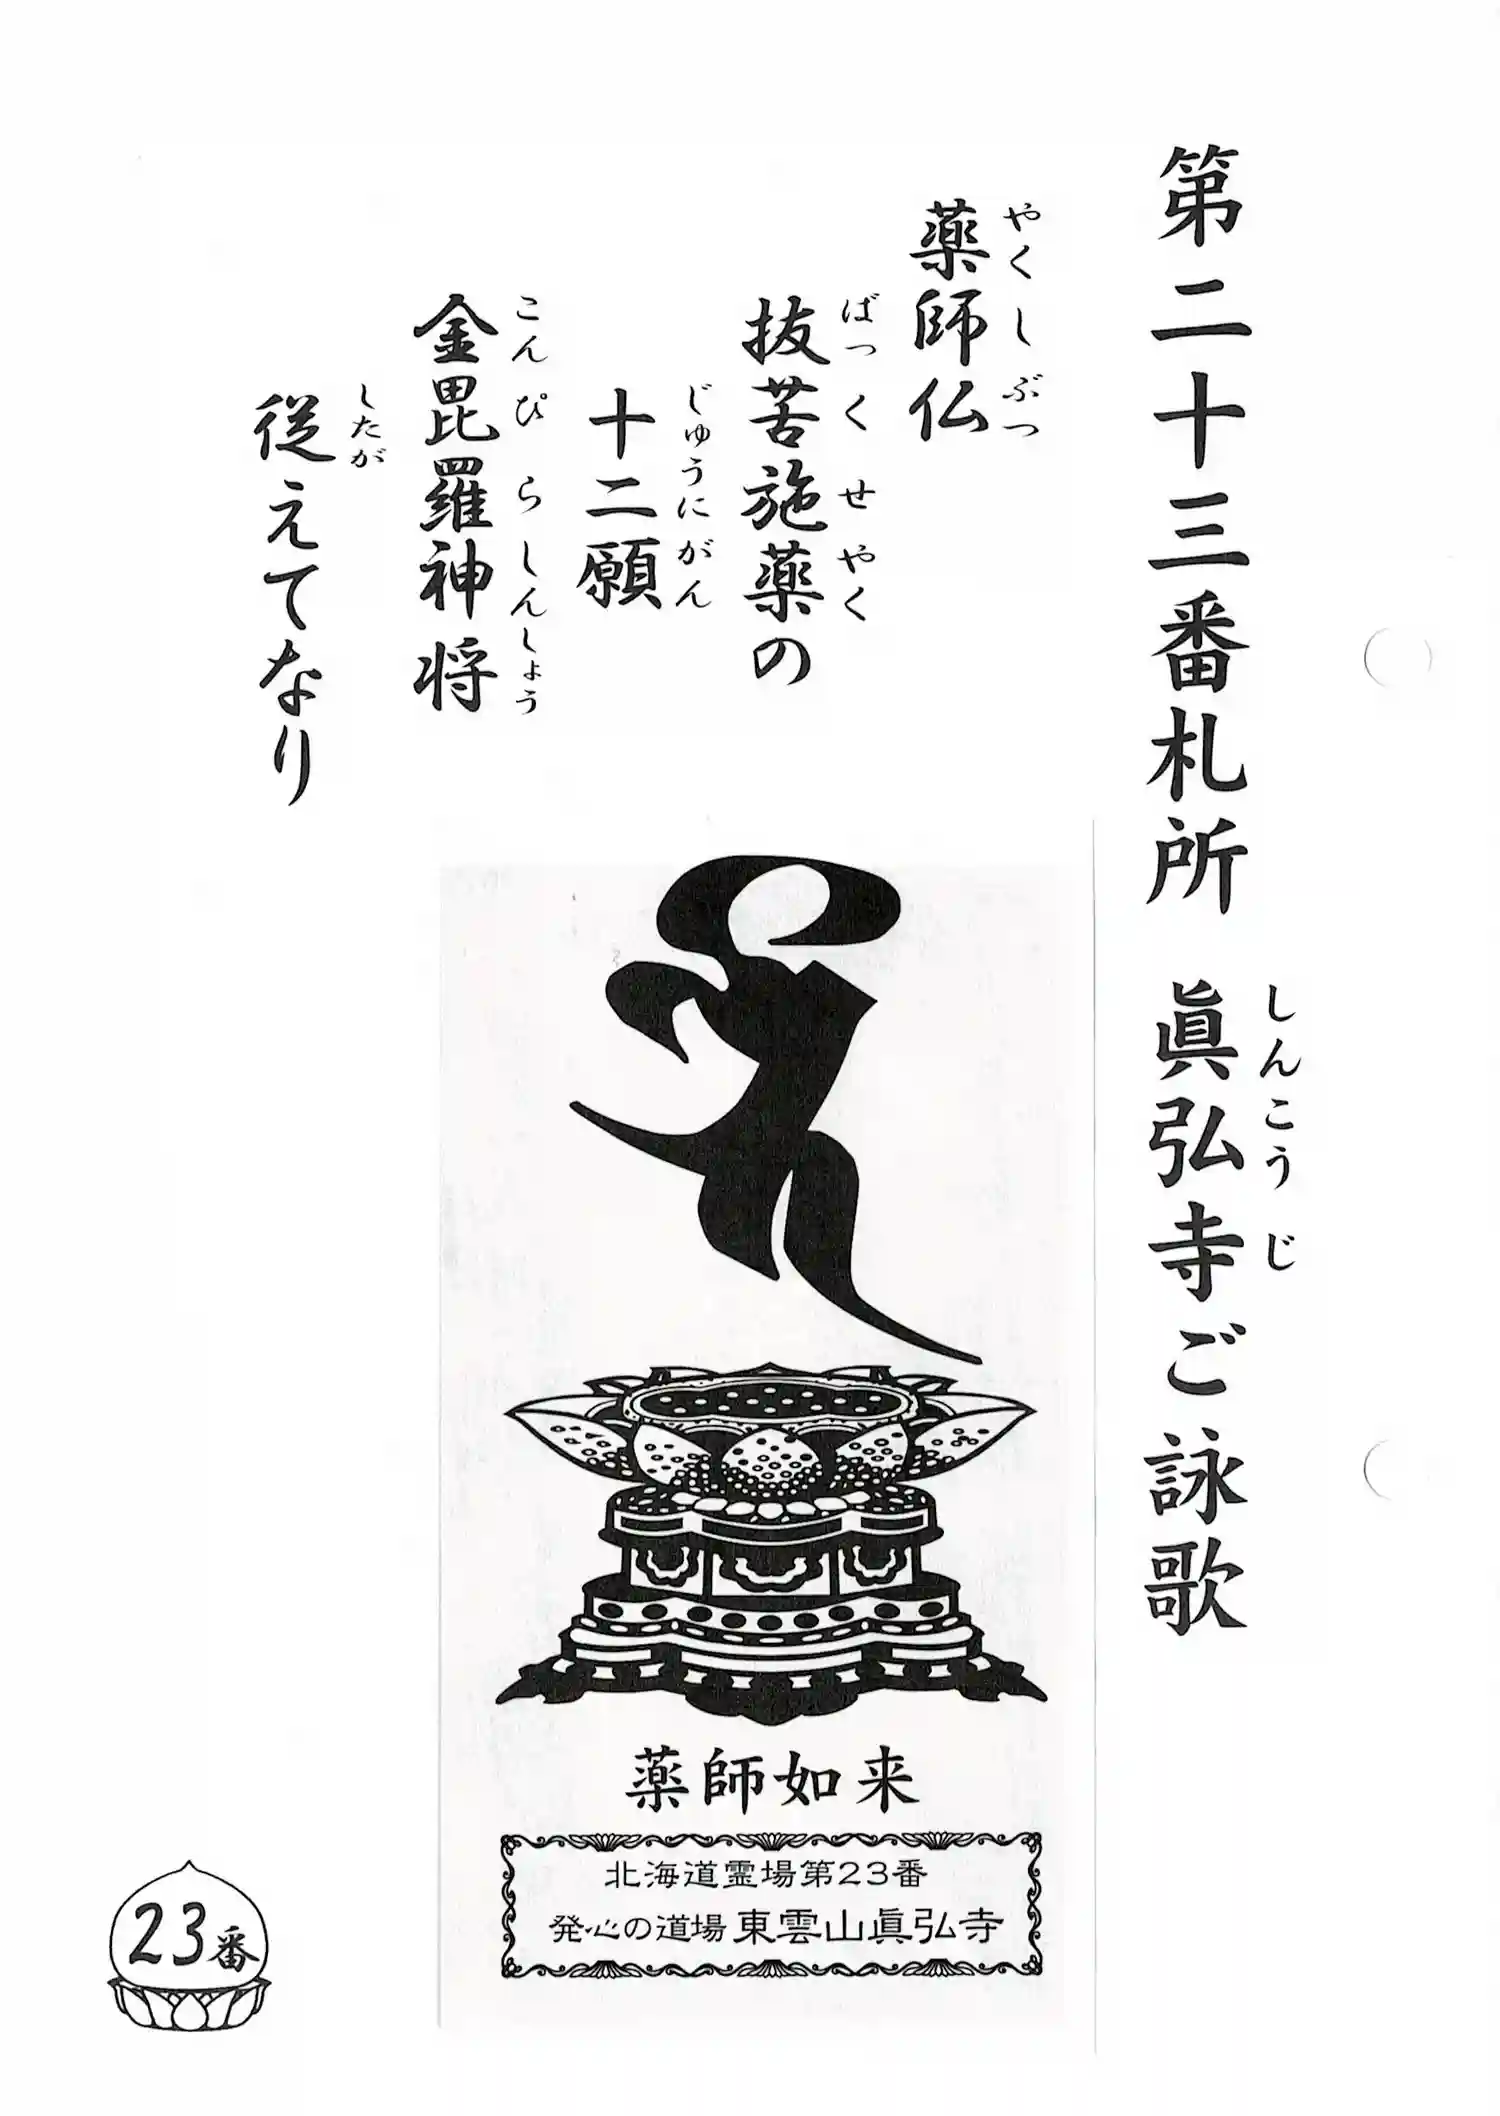 第二十三番札所 眞弘寺ご詠歌
しんこうじ
薬師仏
やくしぶつ
抜苦施薬の
ばっくせやく
十二願
じゅうにがん
金毘羅神将
こんぴらしんしょう
従えてなり
したが
薬師如来
北海道霊場第23番
発心の道場 東雲山眞弘寺
23番